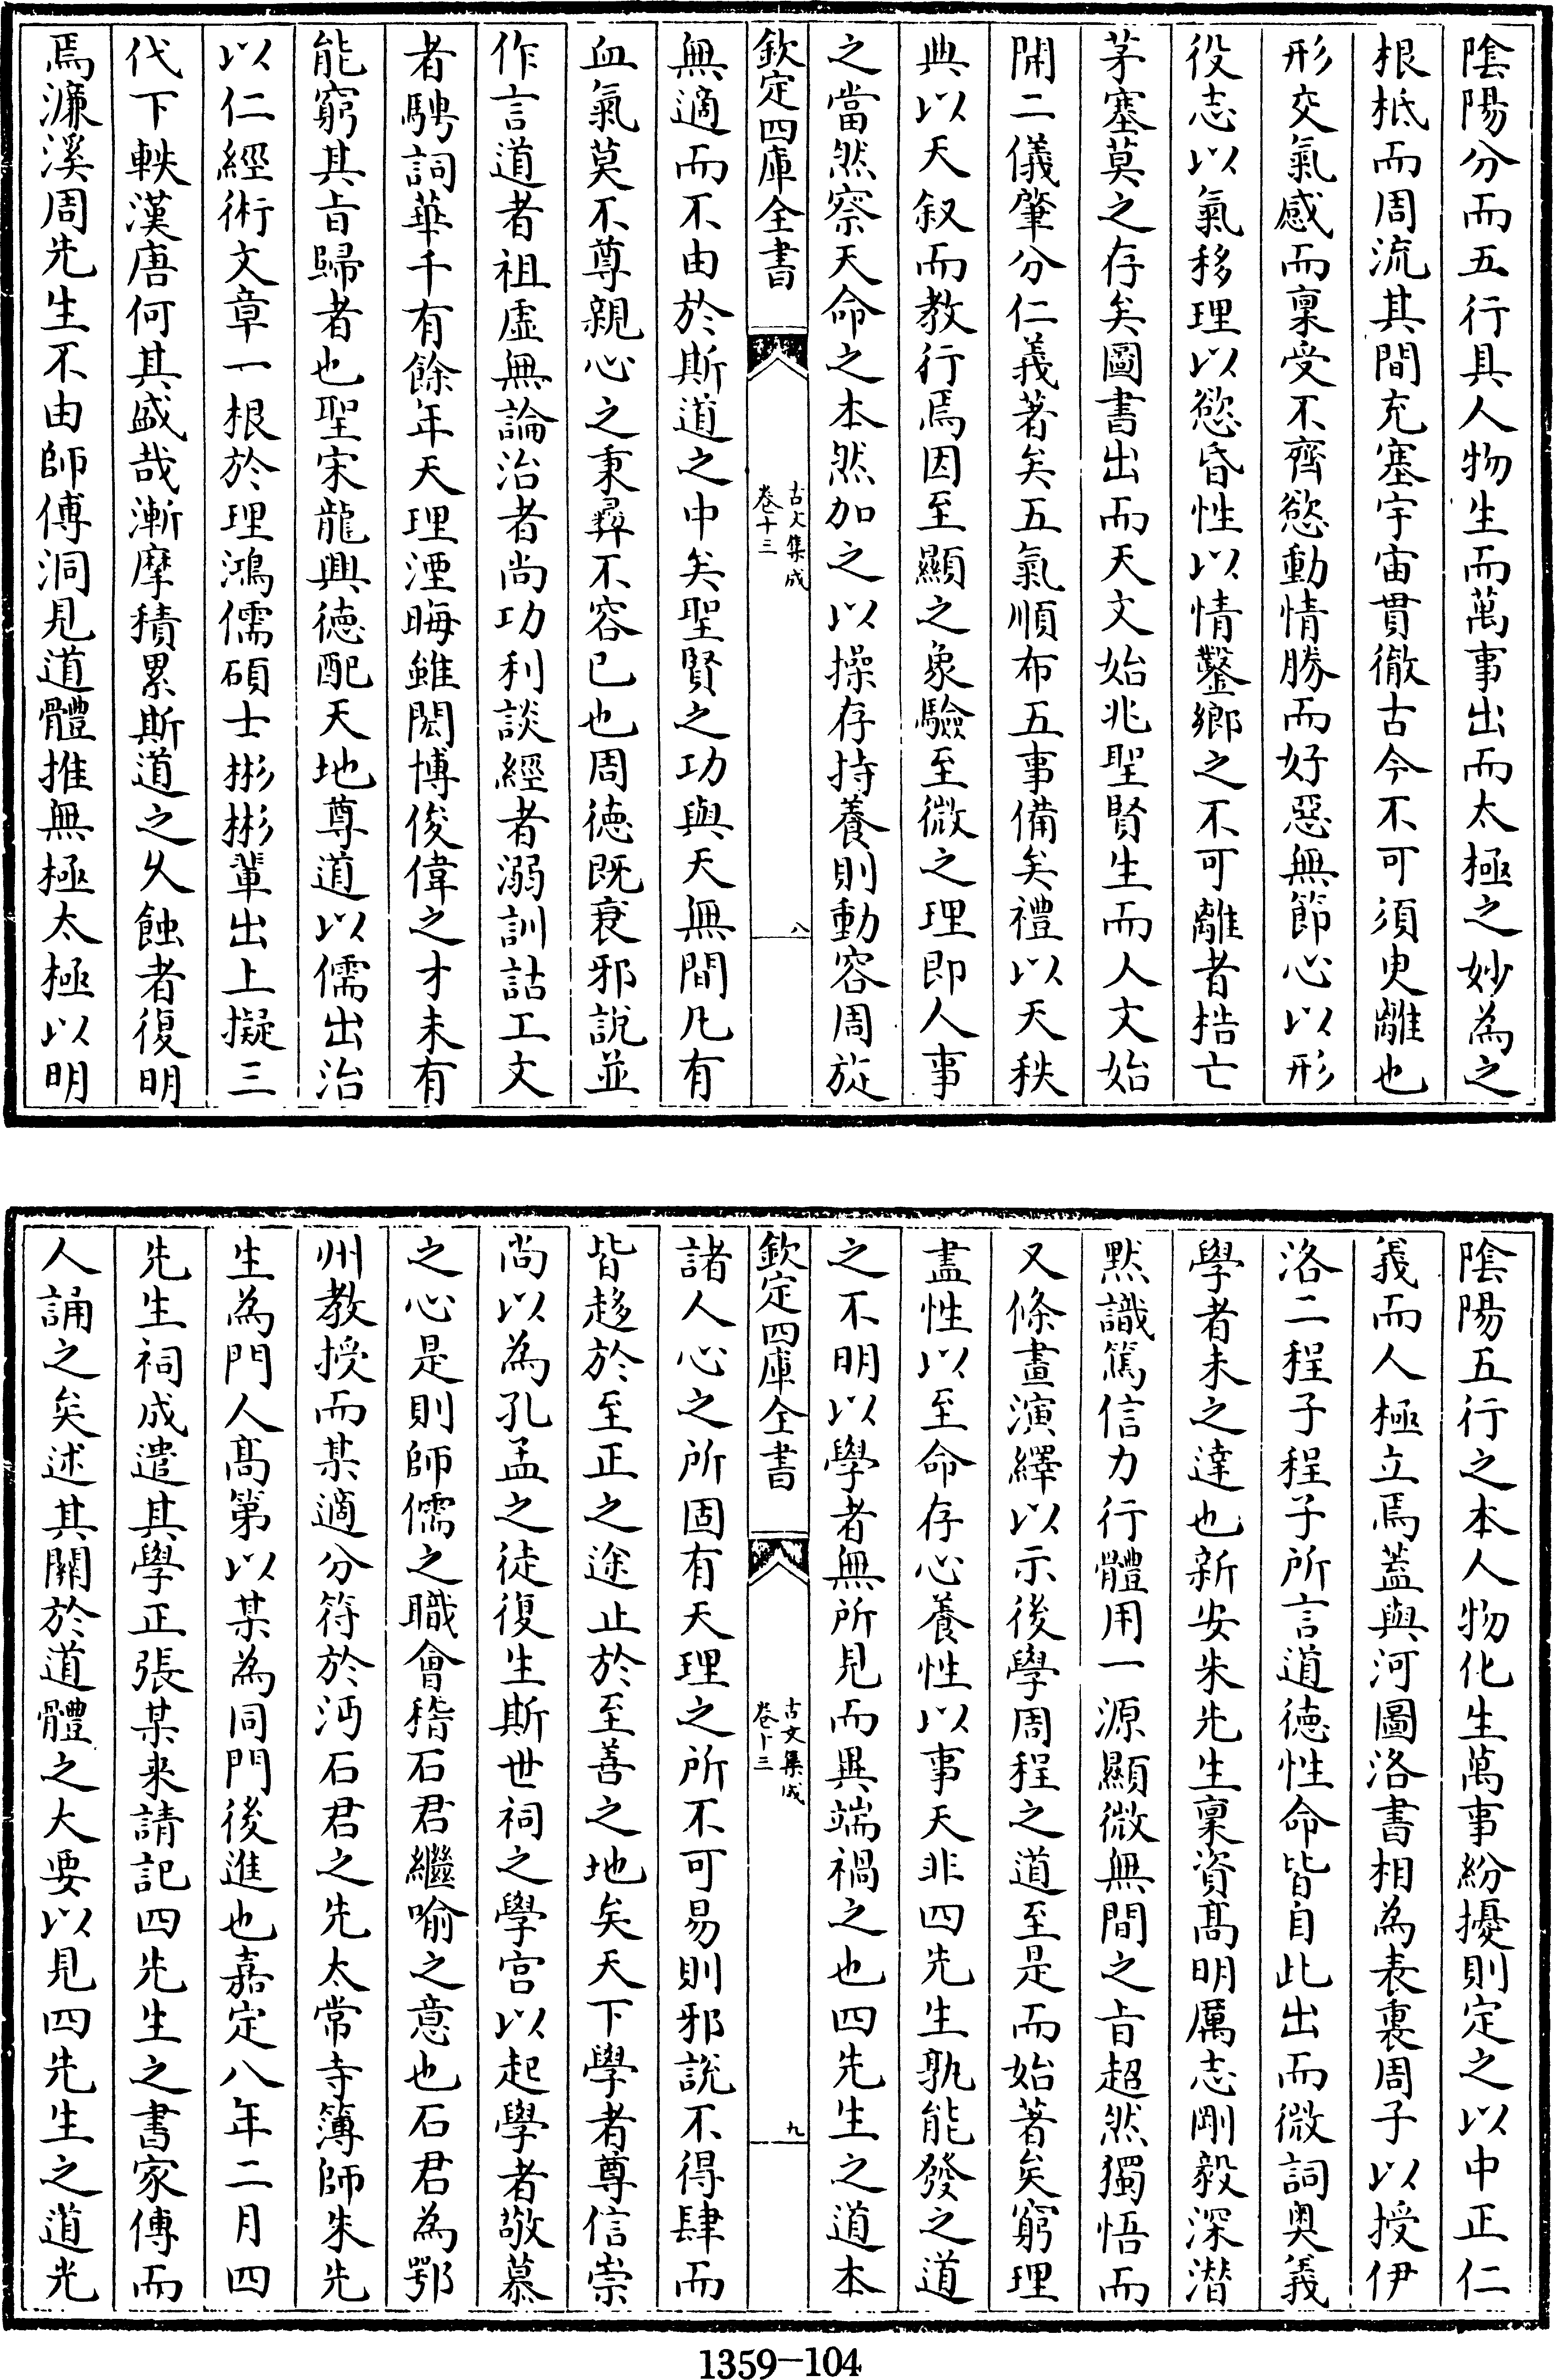 陰陽分而五行具人物生而萬事出而太極之妙為之
根柢而周流其間充塞宇宙貫徹古今不可須臾離也
形交氣感而稟受不齊慾動情勝而好惡無節心以形
役志以氣移理以慾昏性以情鑿鄉之不可離者梏亡
茅塞莫之存矣圖書出而天文始兆聖賢生而人文始
開二儀肇分仁義著矣五氣順布五事備矣禮以天秩
典以天叙而教行焉因至顯之象驗至微之理即人事
之當然察天命之本然加之以操存持養則動容周旋
欽定四庫全書
古文集成
卷十三
八
無適而不由於斯道之中矣聖賢之功與天無間凡有
血氣莫不尊親心之秉彛不容已也周徳既衰邪說並
作言道者祖虛無論治者尚功利談經者溺訓詁工文
者騁詞華千有餘年天理湮晦雖閎博俊偉之才未有
能窮其㫖歸者也聖宋龍興徳配天地尊道以儒出治
以仁經術文章一根於理鴻儒碩士彬彬輩出上擬三
代下軼漢唐何其盛哉漸摩積累斯道之久蝕者復明
焉濂溪周先生不由師傅洞見道體推無極太極以明
陰陽五行之本人物化生萬事紛擾則定之以中正仁
義而人極立焉蓋與河圖洛書相為表裏周子以授伊
洛二程子程子所言道徳性命皆自此出而微詞奥義
學者未之達也新安朱先生稟資髙明厲志剛毅深潛
黙識篤信力行體用一源顯微無間之㫖超然獨悟而
又條畫演繹以示後學周程之道至是而始著矣窮理
盡性以至命存心養性以事天非四先生孰能發之道
之不明以學者無所見而異端禍之也四先生之道本
欽定四庫全書
古文集成
卷十三
九
諸人心之所固有天理之所不可易則邪説不得肆而
皆趍於至正之途止於至善之地矣天下學者尊信崇
尚以為孔孟之徒復生斯世祠之學宫以起學者敬慕
之心是則師儒之職會稽石君繼喻之意也石君為鄂
州教授而某適分符於沔石君之先太常寺簿師朱先
生為門人髙第以某為同門後進也嘉定八年二月四
先生祠成遣其學正張某来請記四先生之書家傳而
人誦之矣述其闗於道體之大要以見四先生之道光
1359—104